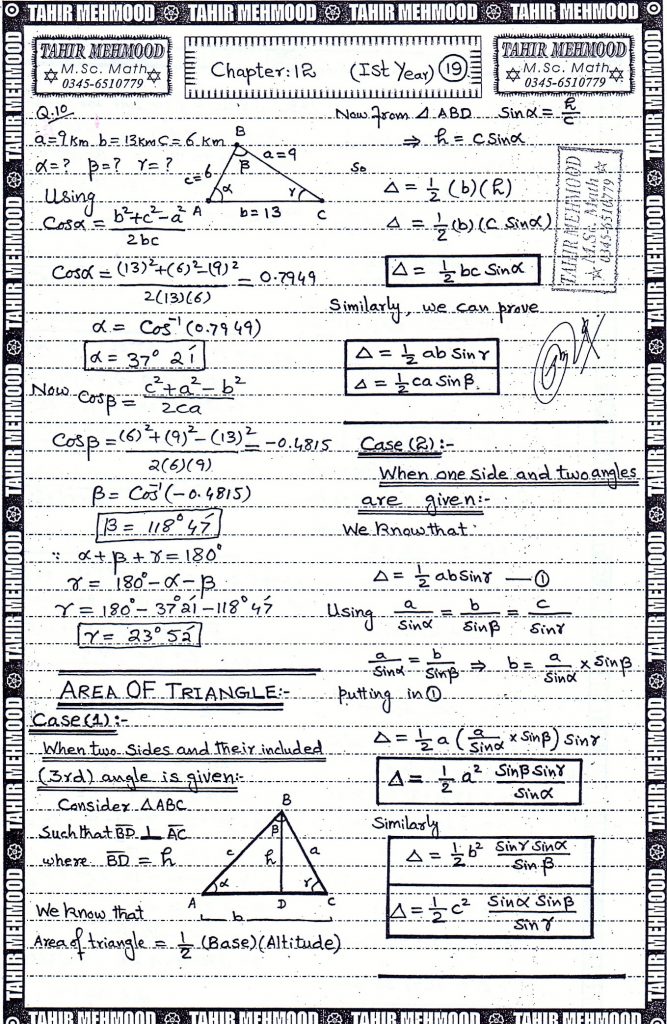 TAHIR MEHMOOD TAHIR MEHMOOD TAHIR MEHMOOD TAHIR MEHMOOD
TAHIR MEHMOOD
M.Sc. Math
0345-6510779
Chapter: 12 (Ist Year) 19
TAHIR MEHMOOD
M.Sc. Math
0345-6510779
Q.10
a=9km b=13km c=6km
α=? β=? γ=?
B
β
c=6
a=9
α
γ
A
b=13
C
Using
Cosα = (b²+c²-a²)/2bc
Cosα = ((13)²+(6)²-(9)²)/2(13)(6) = 0.7949
α = Cos⁻¹(0.7949)
α = 37° 21′
Now Cosβ = (c²+a²-b²)/2ca
Cosβ = ((6)²+(9)²-(13)²)/2(6)(9) = -0.4815
β = Cos⁻¹(-0.4815)
β = 118° 47′
∵ α+β+γ = 180°
γ = 180°-α-β
γ = 180°-37°21′-118°47′
γ = 23° 52′
AREA OF TRIANGLE:-
Case(1):-
When two sides and their included
(3rd) angle is given:-
Consider ΔABC
Such that BD ⊥ AC
where BD = h
B
β
c
h
a
α
γ
A
D
C
b
We know that
Area of triangle = 1/2 (Base)(Altitude)
Now from Δ ABD Sinα = h/c
⇒ h = cSinα
So
Δ = 1/2 (b)(h)
Δ = 1/2 (b)(c Sinα)
Δ = 1/2 bc Sinα
TAHIR MEHMOOD
M.Sc. Math
0345-6510779
Similarly, we can prove
Δ = 1/2 ab Sinγ
Δ = 1/2 ca Sinβ.
Case(2):-
When one side and two angles
are given:-
We know that
Δ = 1/2 ab Sinγ — ①
Using a/Sinα = b/Sinβ = c/Sinγ
a/Sinα = b/Sinβ ⇒ b = a/Sinα × Sinβ
putting in ①
Δ = 1/2 a (a/Sinα × Sinβ) Sinγ
Δ = 1/2 a² SinβSinγ/Sinα
Similarly
Δ = 1/2 b² Sinγ Sinα/Sinβ
Δ = 1/2 c² Sinα Sinβ/Sinγ
TAHIR MEHMOOD TAHIR MEHMOOD TAHIR MEHMOOD TAHIR MEHMOOD